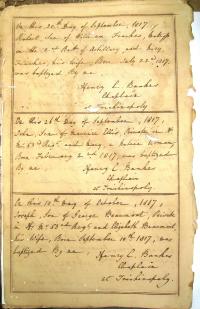 On this 20th Day of September, 1817,
Robert Son of William Fancher,
in the 2nd Batt. of Artillery, and Mary
his Wife, Born July 22nd 1817,
was baptized By me
Henry C. Bankes
Chaplain
at Trichinopoly
On this 26th Day of September, 1817,
John, Son of Maurice Ellis, Private in H
Ms 53d Regt and Mary, a Native Woman,
Born February 2nd 1817, was baptized
By me
Henry C. Bankes
Chaplain
at Trichinopoly.
On this 10th Day of October, 1817,
Joseph, Son of George Beaumont, Private
in H Ms 53d Regt and Elizabeth Beaumont,
his Wife, Born September 10th 1817, was
baptized By me
Henry C. Bankes
Chaplain
at Trichinopoly.